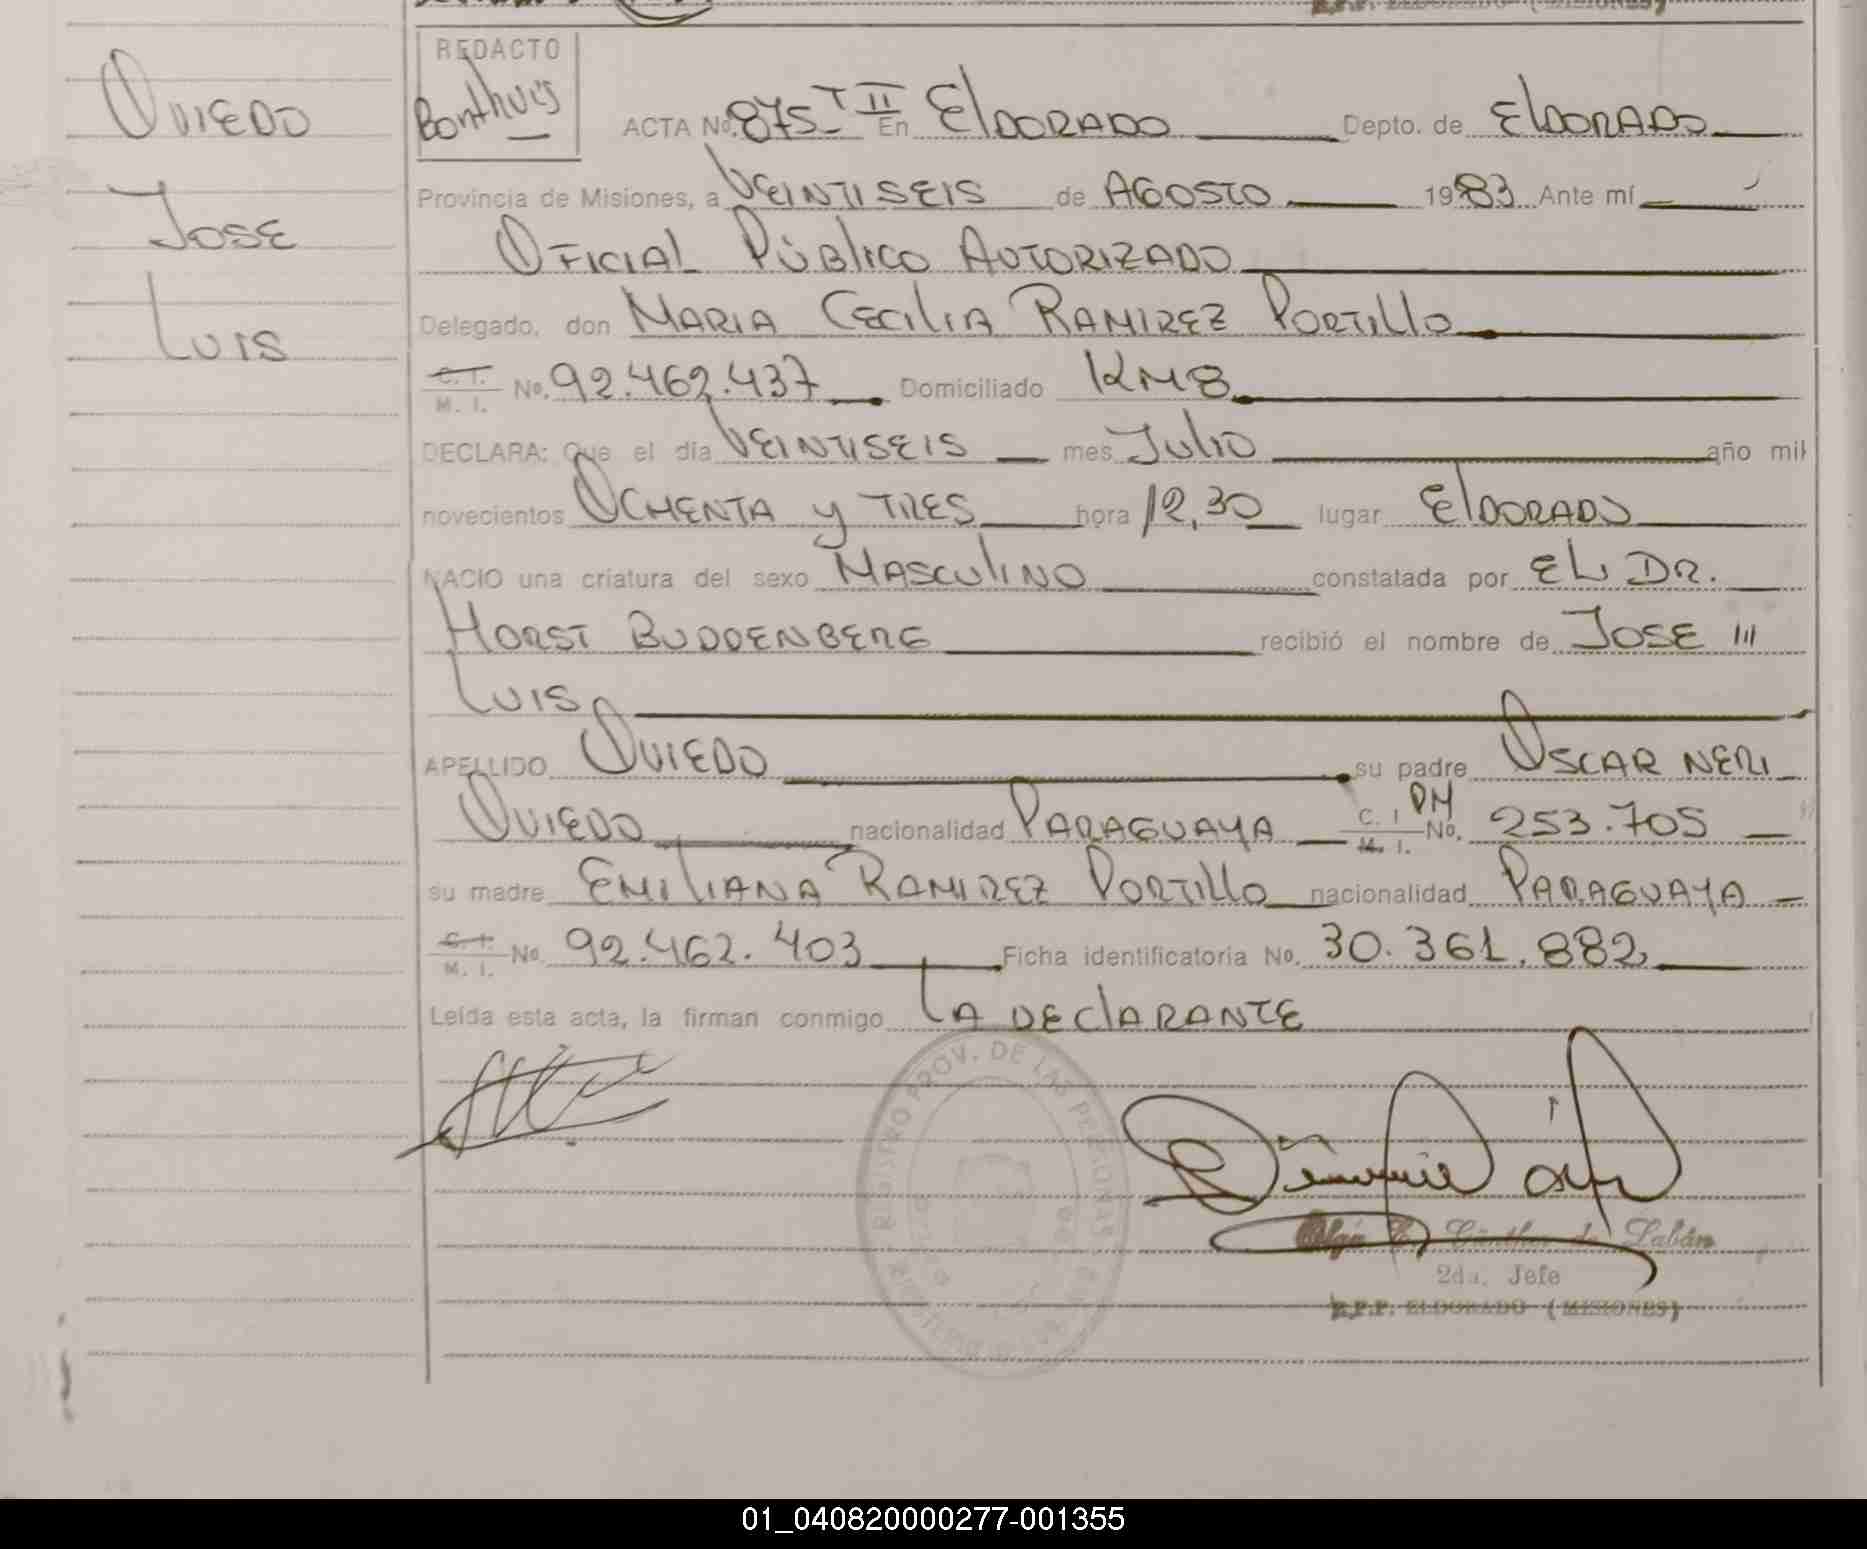 R.P.P. ELDORADO (MISIONES)
OVIEDO
JOSE
LUIS
REDACTO
Bonthuis
ACTA No. 875 T II En ELDORADO Depto. de ELDORADO
Provincia de Misiones, a VEINTISEIS de AGOSTO 1983 Ante mí
OFICIAL PÚBLICO AUTORIZADO
Delegado, don MARIA CECILIA RAMIREZ PORTILLO
C. I.
M. I. No. 92.462.437 Domiciliado KM 8
DECLARA: Que el día VEINTISEIS mes JULIO año mil
novecientos OCHENTA y TRES hora 12,30 lugar ELDORADO
NACIO una criatura del sexo MASCULINO constatada por EL DR.
HORST BUDDENBERG recibió el nombre de JOSE
LUIS
APELLIDO OVIEDO su padre OSCAR NERI
OVIEDO nacionalidad PARAGUAYA C. I. M. I. DM No. 253.705
su madre EMILIANA RAMIREZ PORTILLO nacionalidad PARAGUAYA
C. I.
M. I. No. 92.462.403 Ficha identificatoria No. 30.361.882
Leída esta acta, la firman conmigo LA DECLARANTE
REGISTRO PROV. DE LAS PERSONAS
2da. Jefe
R.P.P. ELDORADO (MISIONES)
01_040820000277-001355